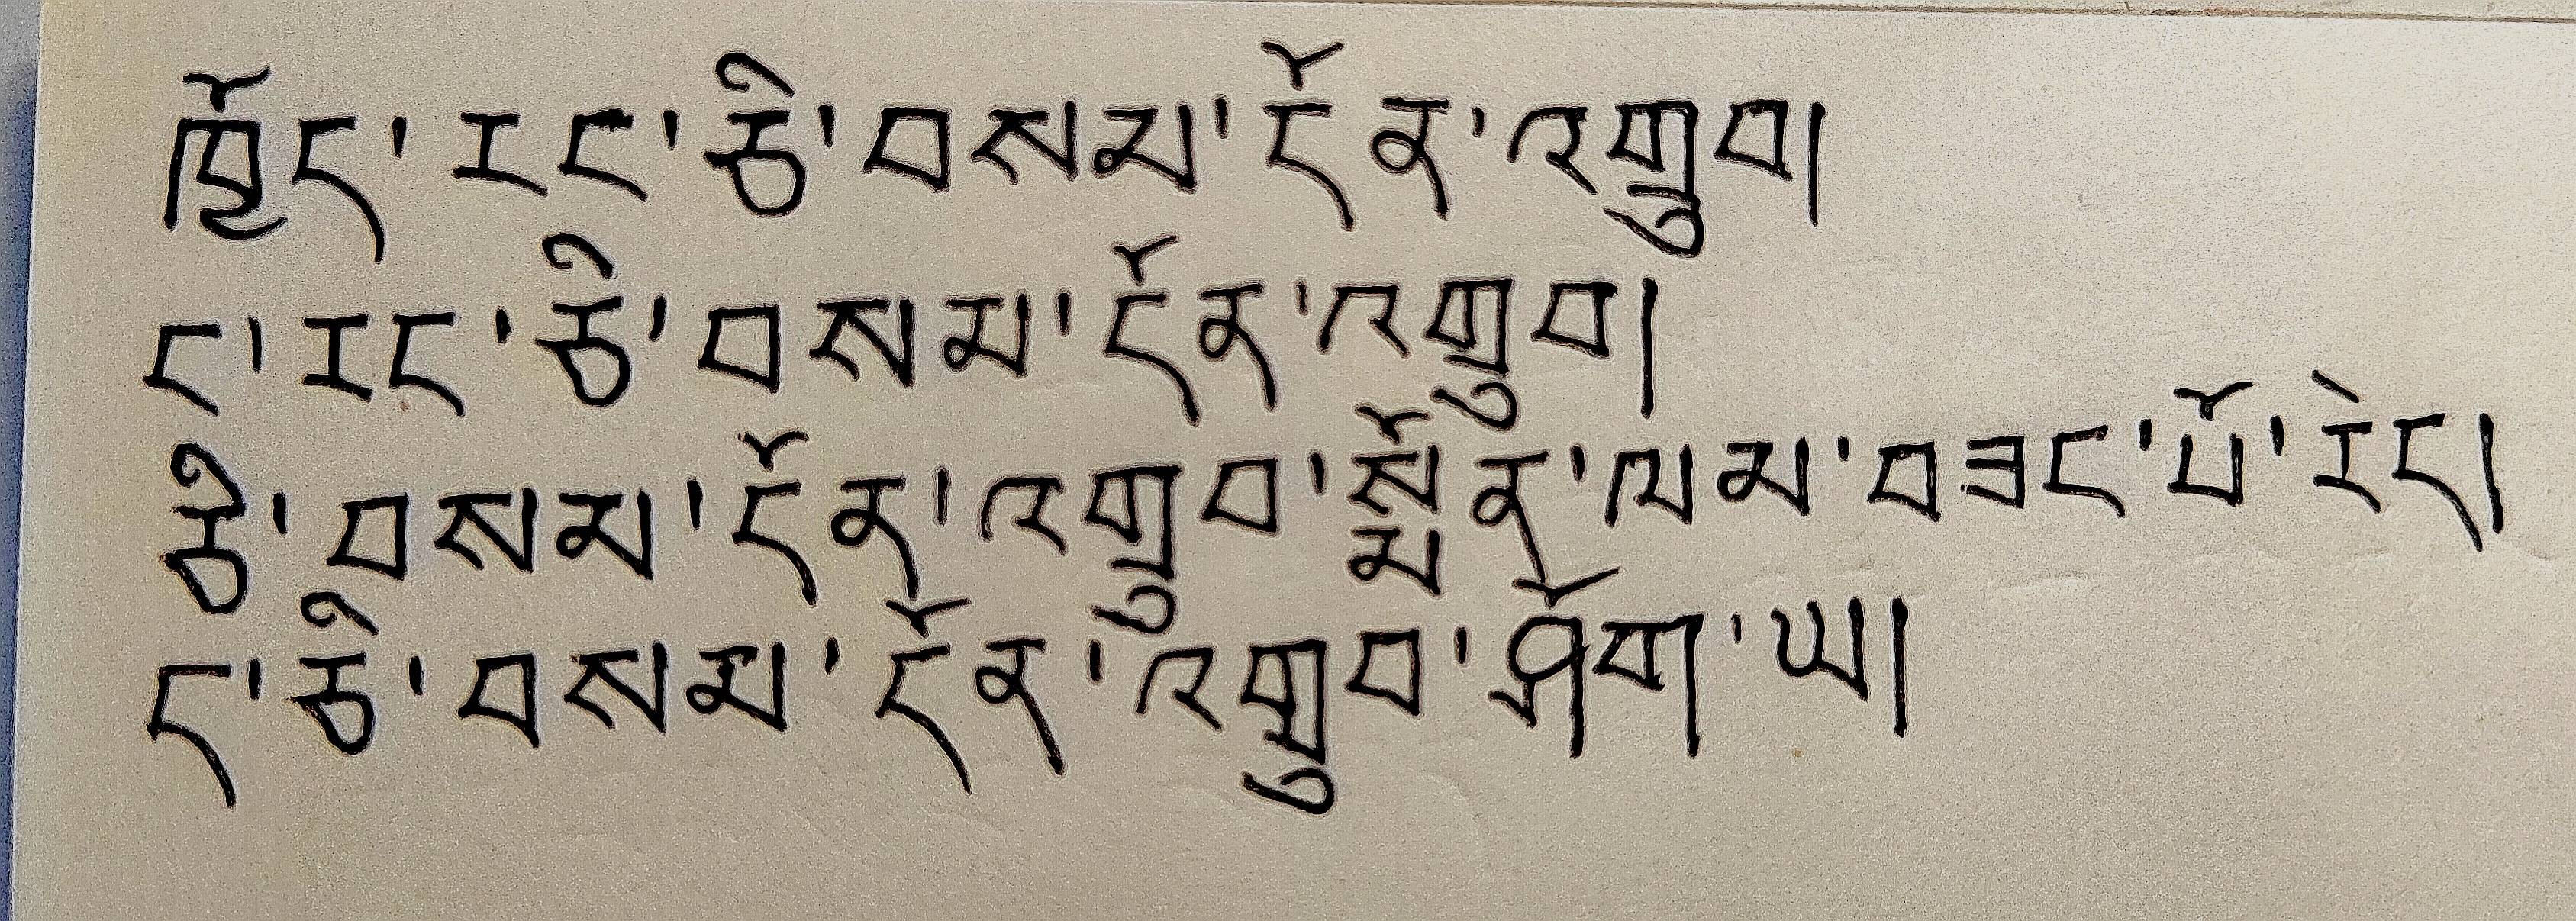 ཁྱོད་རང་ཅི་བསམ་དོན་འགྲུབ།
ང་རང་ཅི་བསམ་དོན་འགྲུབ།
ཅི་བསམ་དོན་འགྲུབ་སྨོན་ལམ་བཟང་པོ་རེད།
ང་ཅི་བསམ་དོན་འགྲུབ་ཤོག་ཡ།